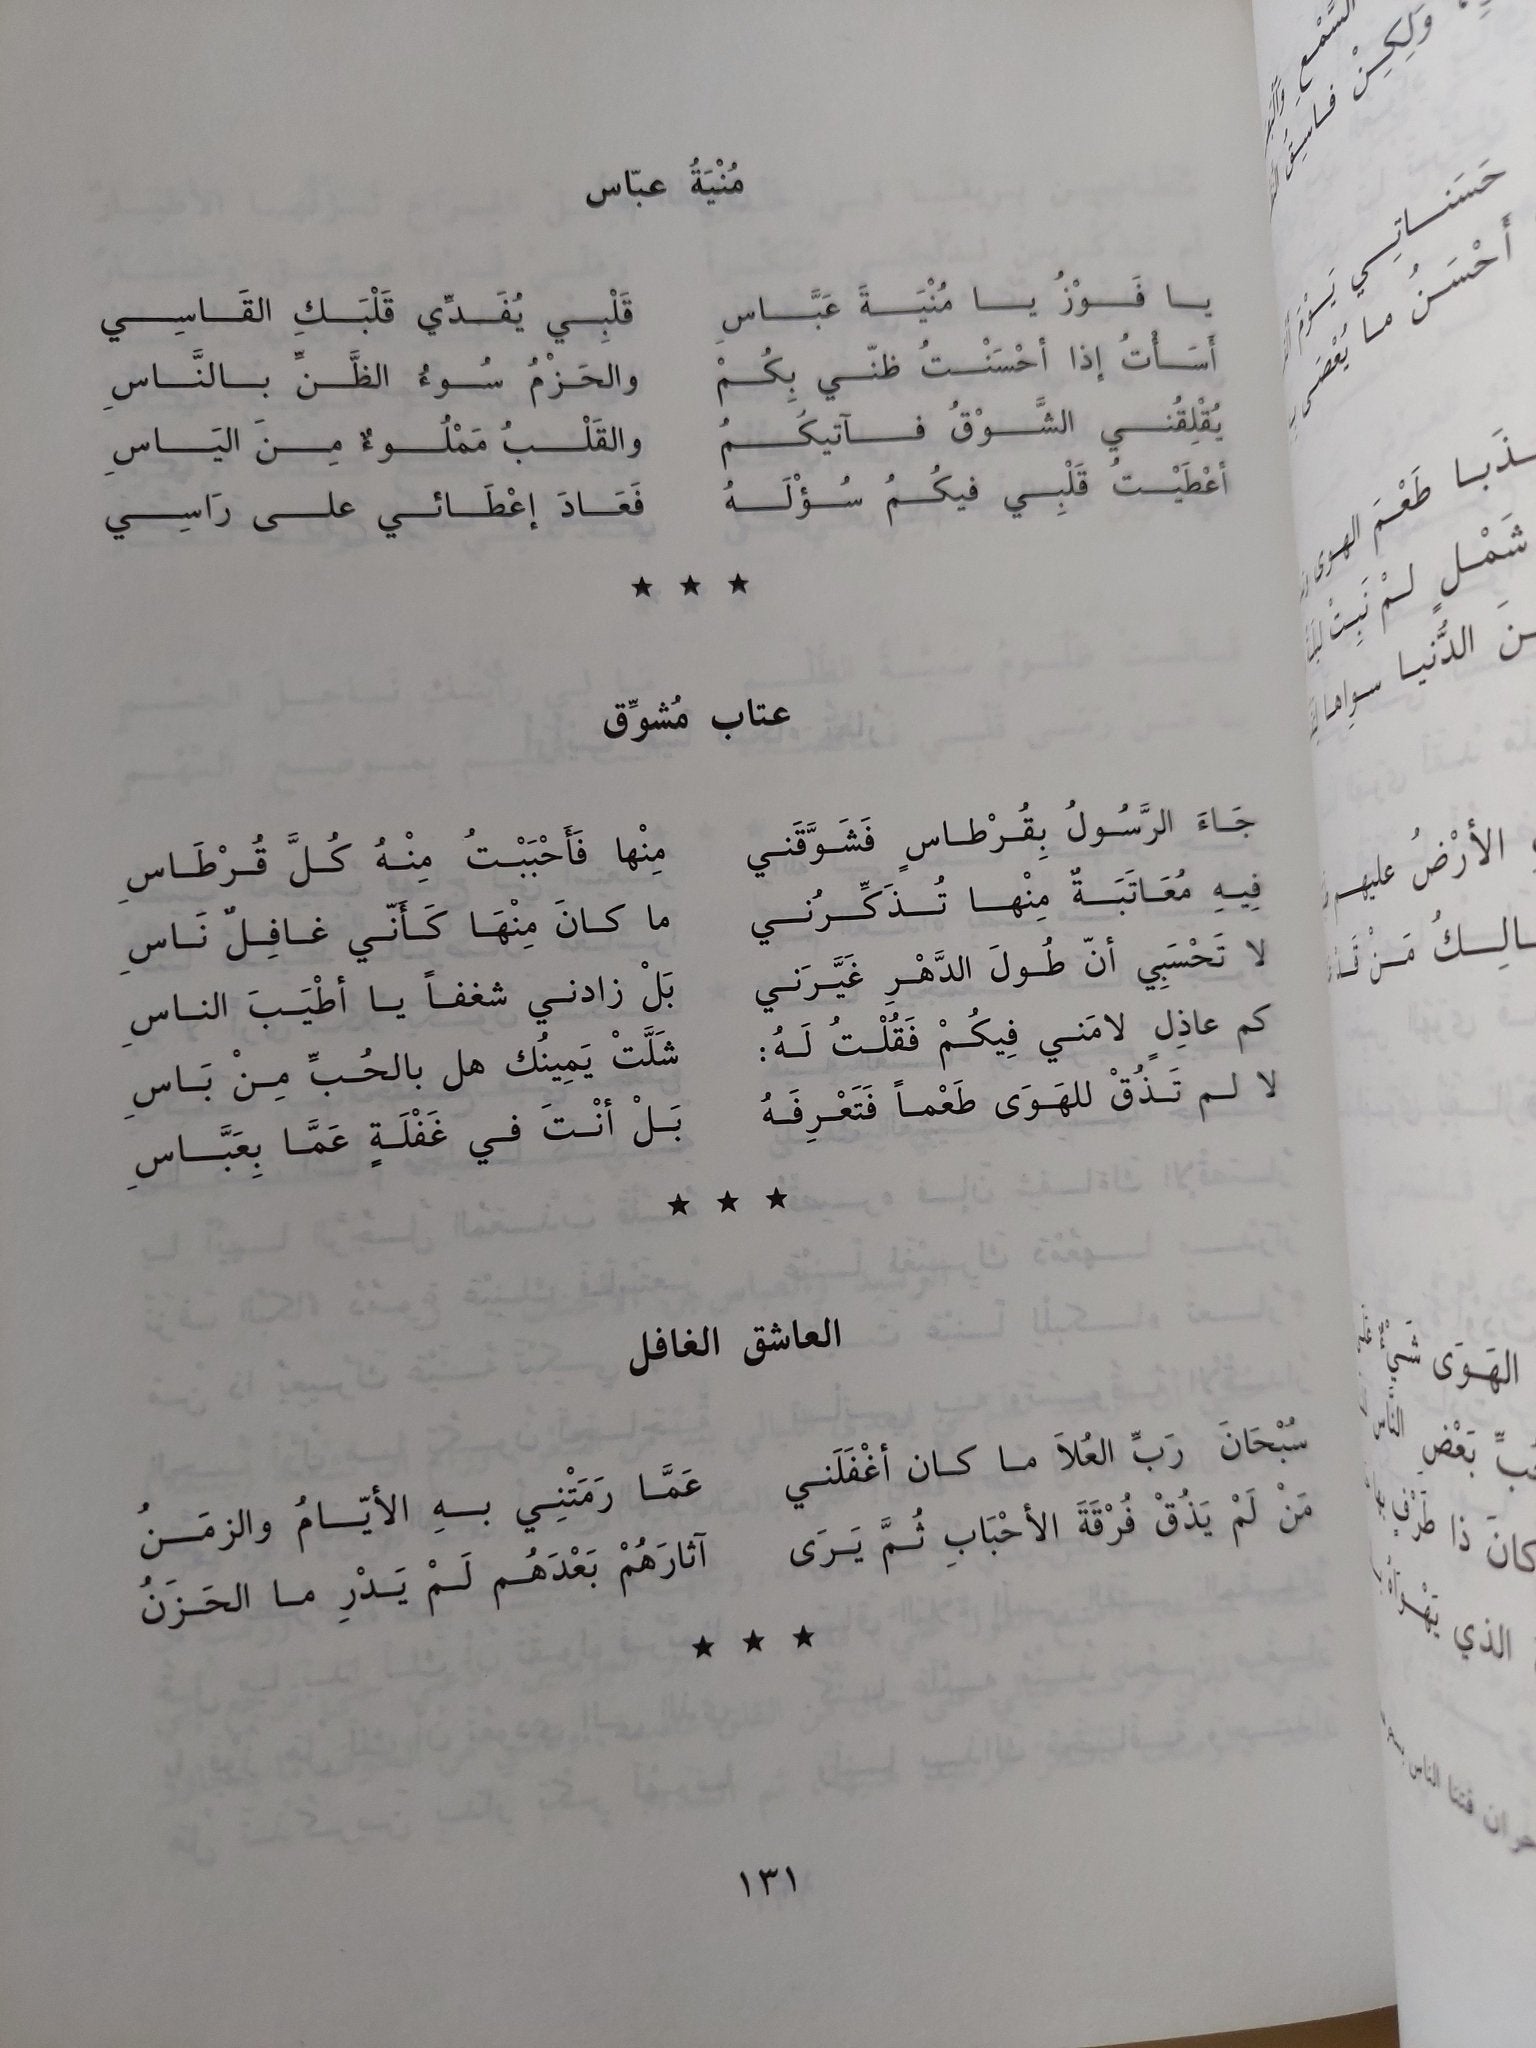 مُنْيَةُ عبّاس
يا فَوْزُ يا مُنْيَةَ عَبَّاسِ قَلْبِي يُفَدِّي قَلْبَكِ القَاسِي
أَسَأْتُ إذا أحْسَنْتُ ظنّي بِكُمْ والحَزْمُ سُوءُ الظَّنِّ بالنَّاسِ
يُقْلِقُني الشَّوْقُ فآتيكُمُ والقَلْبُ مَمْلُوءٌ مِنَ اليَاسِ
أعْطَيْتُ قَلْبِي فيكُمُ سُؤْلَهُ فَعَادَ إعْطَائي على رَاسِي
★ ★ ★
عتاب مُشوِّق
جَاءَ الرَّسُولُ بِقُرْطاسٍ فَشَوَّقَني مِنْها فَأَحْبَبْتُ مِنْهُ كُلَّ قُرْطَاسِ
فِيهِ مُعَاتَبَةٌ مِنْها تُذَكِّرُني ما كانَ مِنْهَا كَأَنّي غافِلٌ نَاسِ
لا تَحْسَبِي أنّ طُولَ الدَّهْرِ غَيَّرَني بَلْ زادني شغفاً يا أطْيَبَ الناسِ
كم عاذِلٍ لامَني فِيكُمْ فَقُلْتُ لَهُ: شَلَّتْ يَمِينُك هل بالحُبِّ مِنْ بَاسِ
لا لم تَذُقْ للهَوَى طَعْماً فَتَعْرِفَهُ بَلْ أنْتَ في غَفْلَةٍ عَمَّا بِعَبَّاسِ
★ ★ ★
العاشق الغافل
سُبْحَانَ رَبِّ العُلاَ ما كان أغْفَلَني عَمَّا رَمَتْنِي بهِ الأيّامُ والزمَنُ
مَنْ لَمْ يَذُقْ فُرْقَةَ الأحْبَابِ ثُمَّ يَرَى آثارَهُمْ بَعْدَهُم لَمْ يَدْرِ ما الحَزَنُ
★ ★ ★
١٣١
السَّمْعِ
وَلَكِنْ فاسِقُ
حَسَناتِي يَوْمَ
أَحْسَنُ ما يُعْصَى
طَعْمَ الهوى
شَمْلٍ لمْ نَبِتْ
الدُّنيا سواها
الأرْضُ عليهم
مَنْ
الهَوَى شَيْءٌ
بَعْضِ النَّاس
كانَ ذا طَرْفٍ
الذي يَهْواهُ
ان فتنا الناس